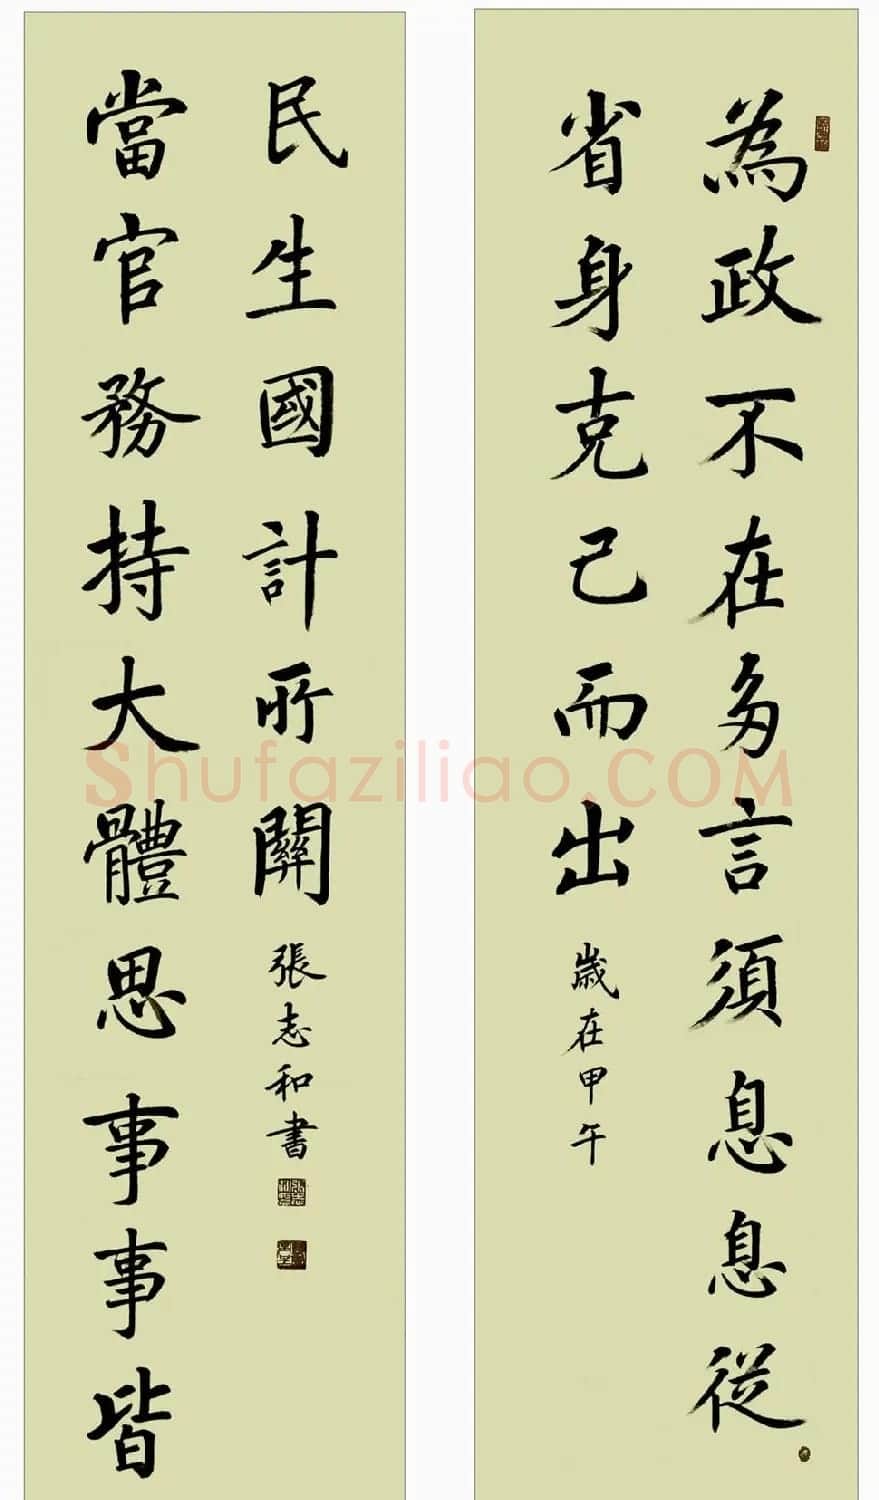 為政不在多言須息息從
省身克己而出
歲在甲午
當官務持大體思事事皆
民生國計所關
張志和書
Shufaziliao.COM